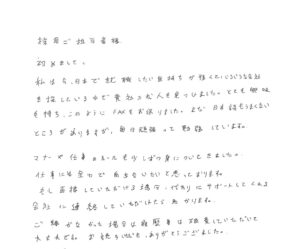 採用ご担当者様
初めまして。
私は今、日本で就職したい気持ちが強くていろいろな会社
を探している中で貴社の求人を見つけました。とても興味
を持ち、このように FAXをお送りました。まだ日本語もうまくない
ところがありますが、毎日頑張って勉強しています。
マナーや仕事のルールも少しずつ身についてきました。
仕事には全力で出きないかと思っております。
もし面接していただける場合、代わりにサポートしてくれる
会社に連絡していただけたらと助かります。
ご縁がなかった場合は履歴書は破棄していただいて
大丈夫です。お読みいただき、ありがとうございました。